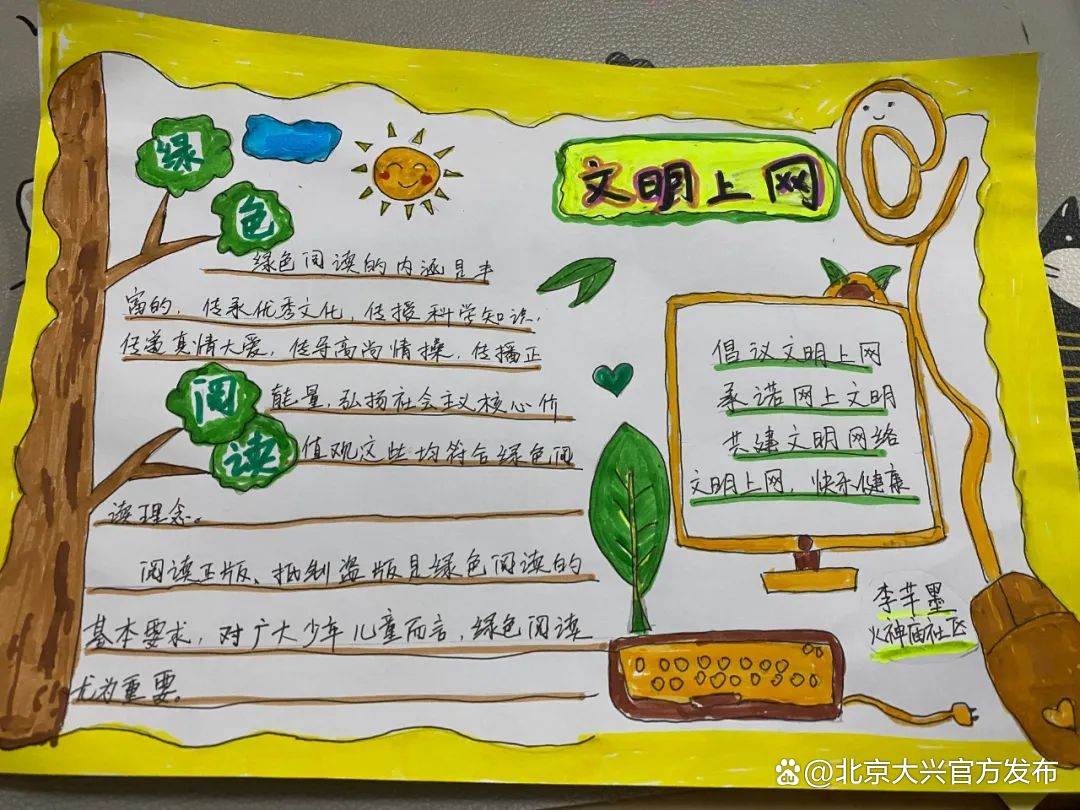 绿色
绿色阅读的内涵是丰
富的，传承优秀文化，传授科学知识，
传递真情大爱，传导高尚情操，传播正
阅读
能量，弘扬社会主义核心价
值观这些均符合绿色阅
读理念。
阅读正版、抵制盗版是绿色阅读的
基本要求，对广大少年儿童而言，绿色阅读
尤为重要。
文明上网
倡议文明上网
承诺网上文明
共建文明网络
文明上网，快乐健康
李芊墨
火神庙社区
@北京大兴官方发布